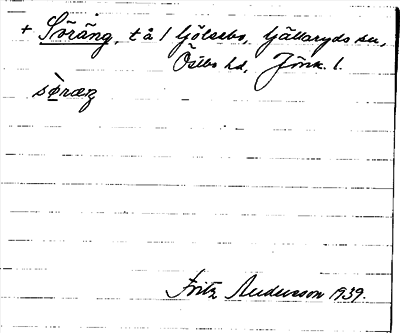 + Söräng, t å 1 Gölsebo, Gällaryds sn,
Östbo hd, Jönk. l.
sò̀ræŋ
Fritz Andersson 1939.